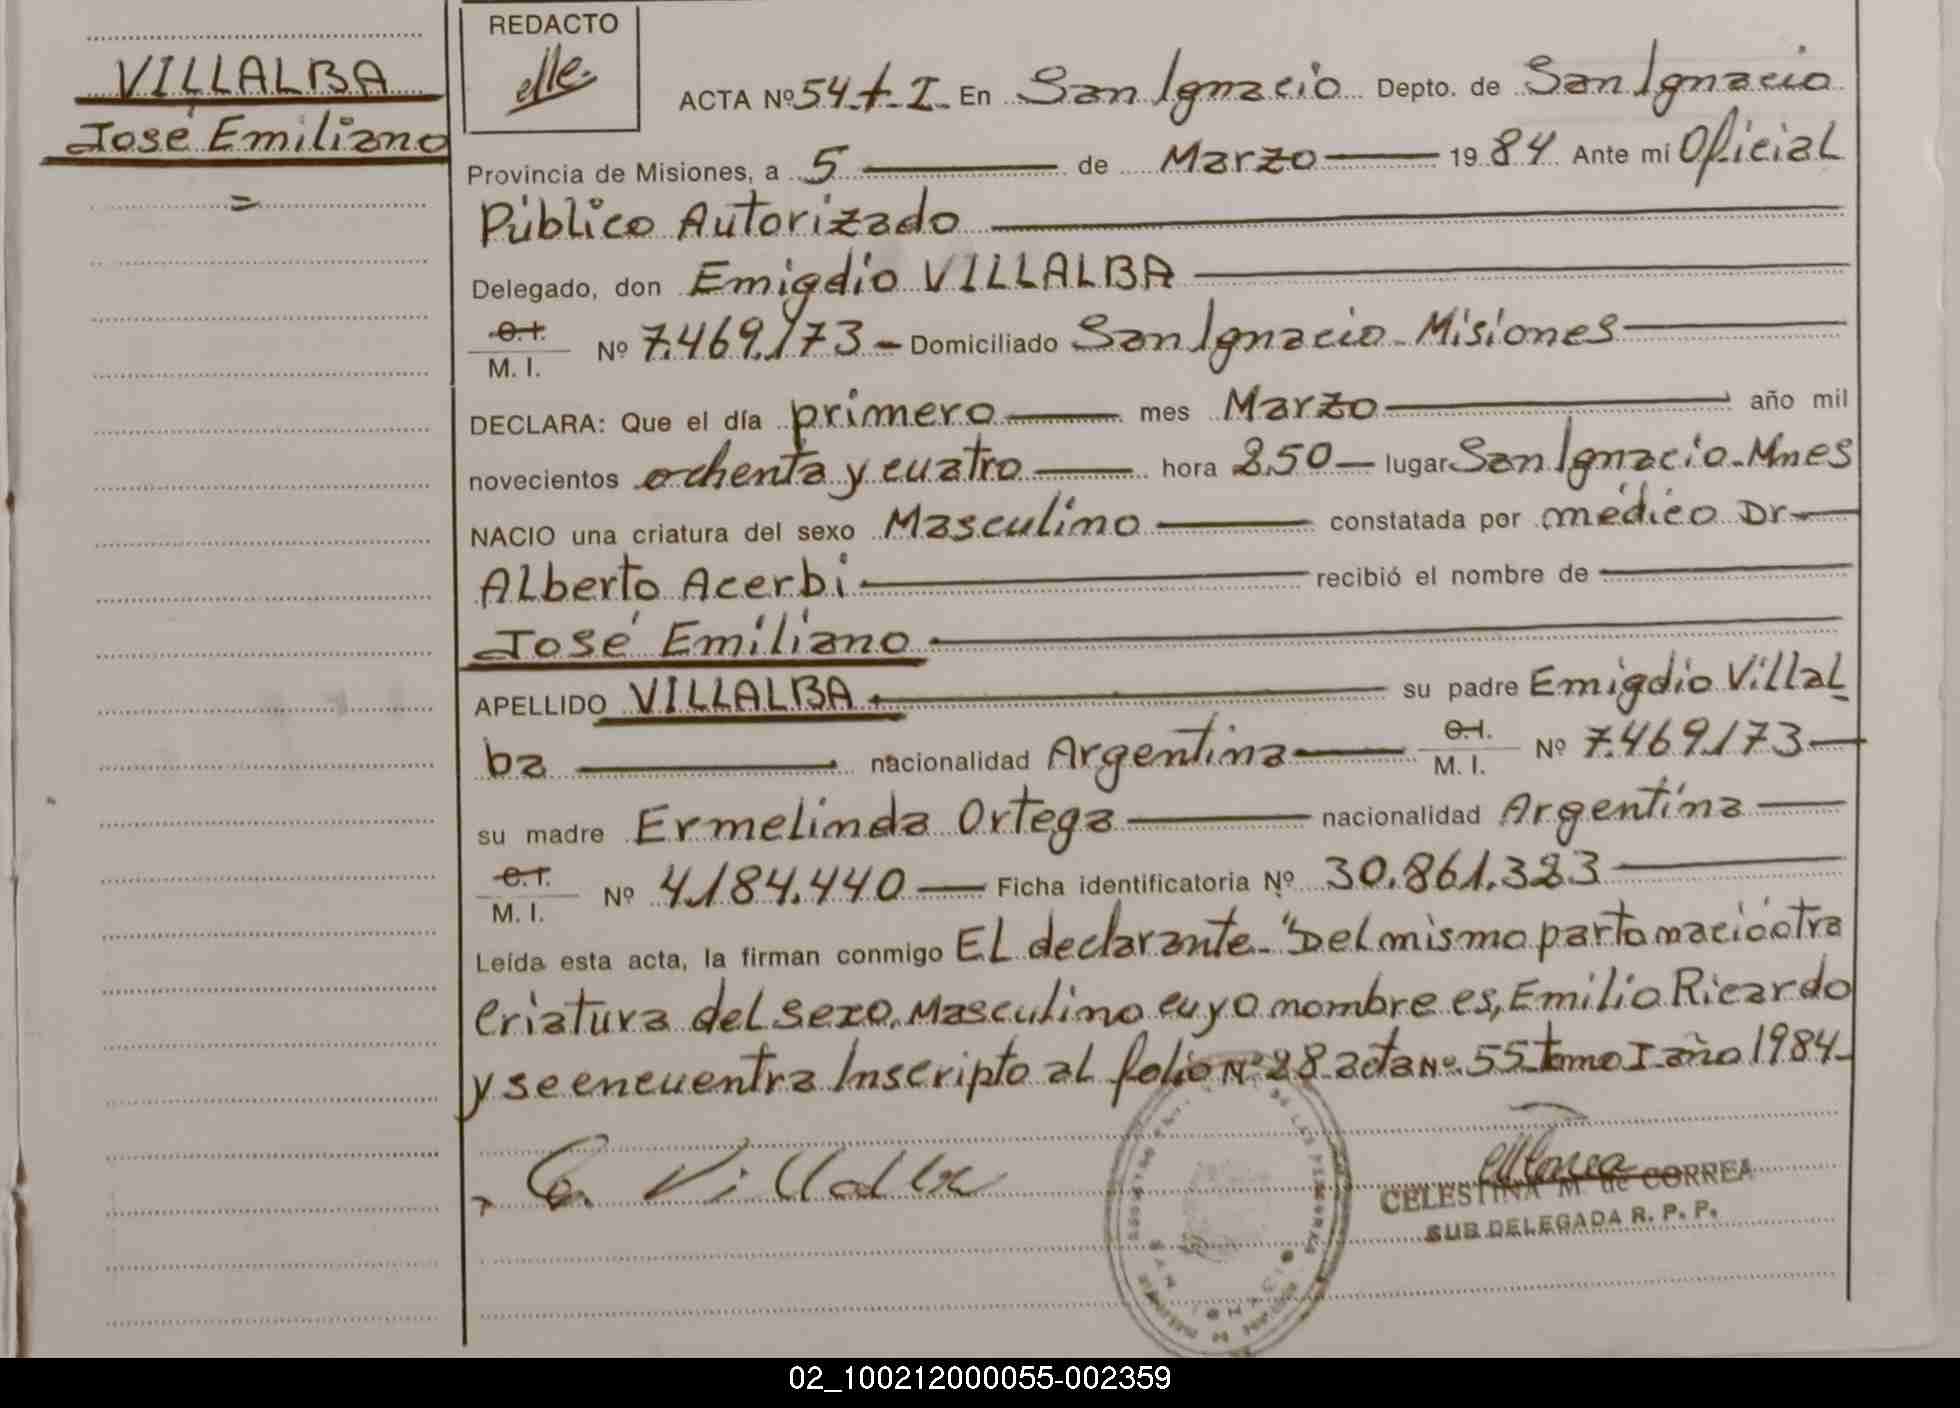 VILLALBA
José Emiliano
=
REDACTO
ACTA Nº 54 t. I. En San Ignacio Depto. de San Ignacio
Provincia de Misiones, a 5 de Marzo 1984 Ante mí Oficial
Público Autorizado
Delegado, don Emigdio VILLALBA
C.I.
M. I. Nº 7.469.173 - Domiciliado San Ignacio - Misiones
DECLARA: Que el día primero mes Marzo año mil
novecientos ochenta y cuatro hora 8.50 lugar San Ignacio - Mnes
NACIO una criatura del sexo Masculino constatada por médico Dr
Alberto Acerbi recibió el nombre de
José Emiliano
APELLIDO VILLALBA su padre Emigdio Villal
ba nacionalidad Argentina C.I. M. I. Nº 7.469.173
su madre Ermelinda Ortega nacionalidad Argentina
C.I.
M. I. Nº 4.184.440 Ficha identificatoria Nº 30.861.383
Leída esta acta, la firman conmigo El declarante - "Del mismo parto nació otra
criatura del sexo, Masculino cuyo nombre es, Emilio Ricardo
y se encuentra Inscripto al folio Nº 28 acta Nº 55 tomo I año 1984 -
E. Villalba
CELESTINA M. de CORREA
SUB DELEGADA R. P. P.
02_100212000055-002359